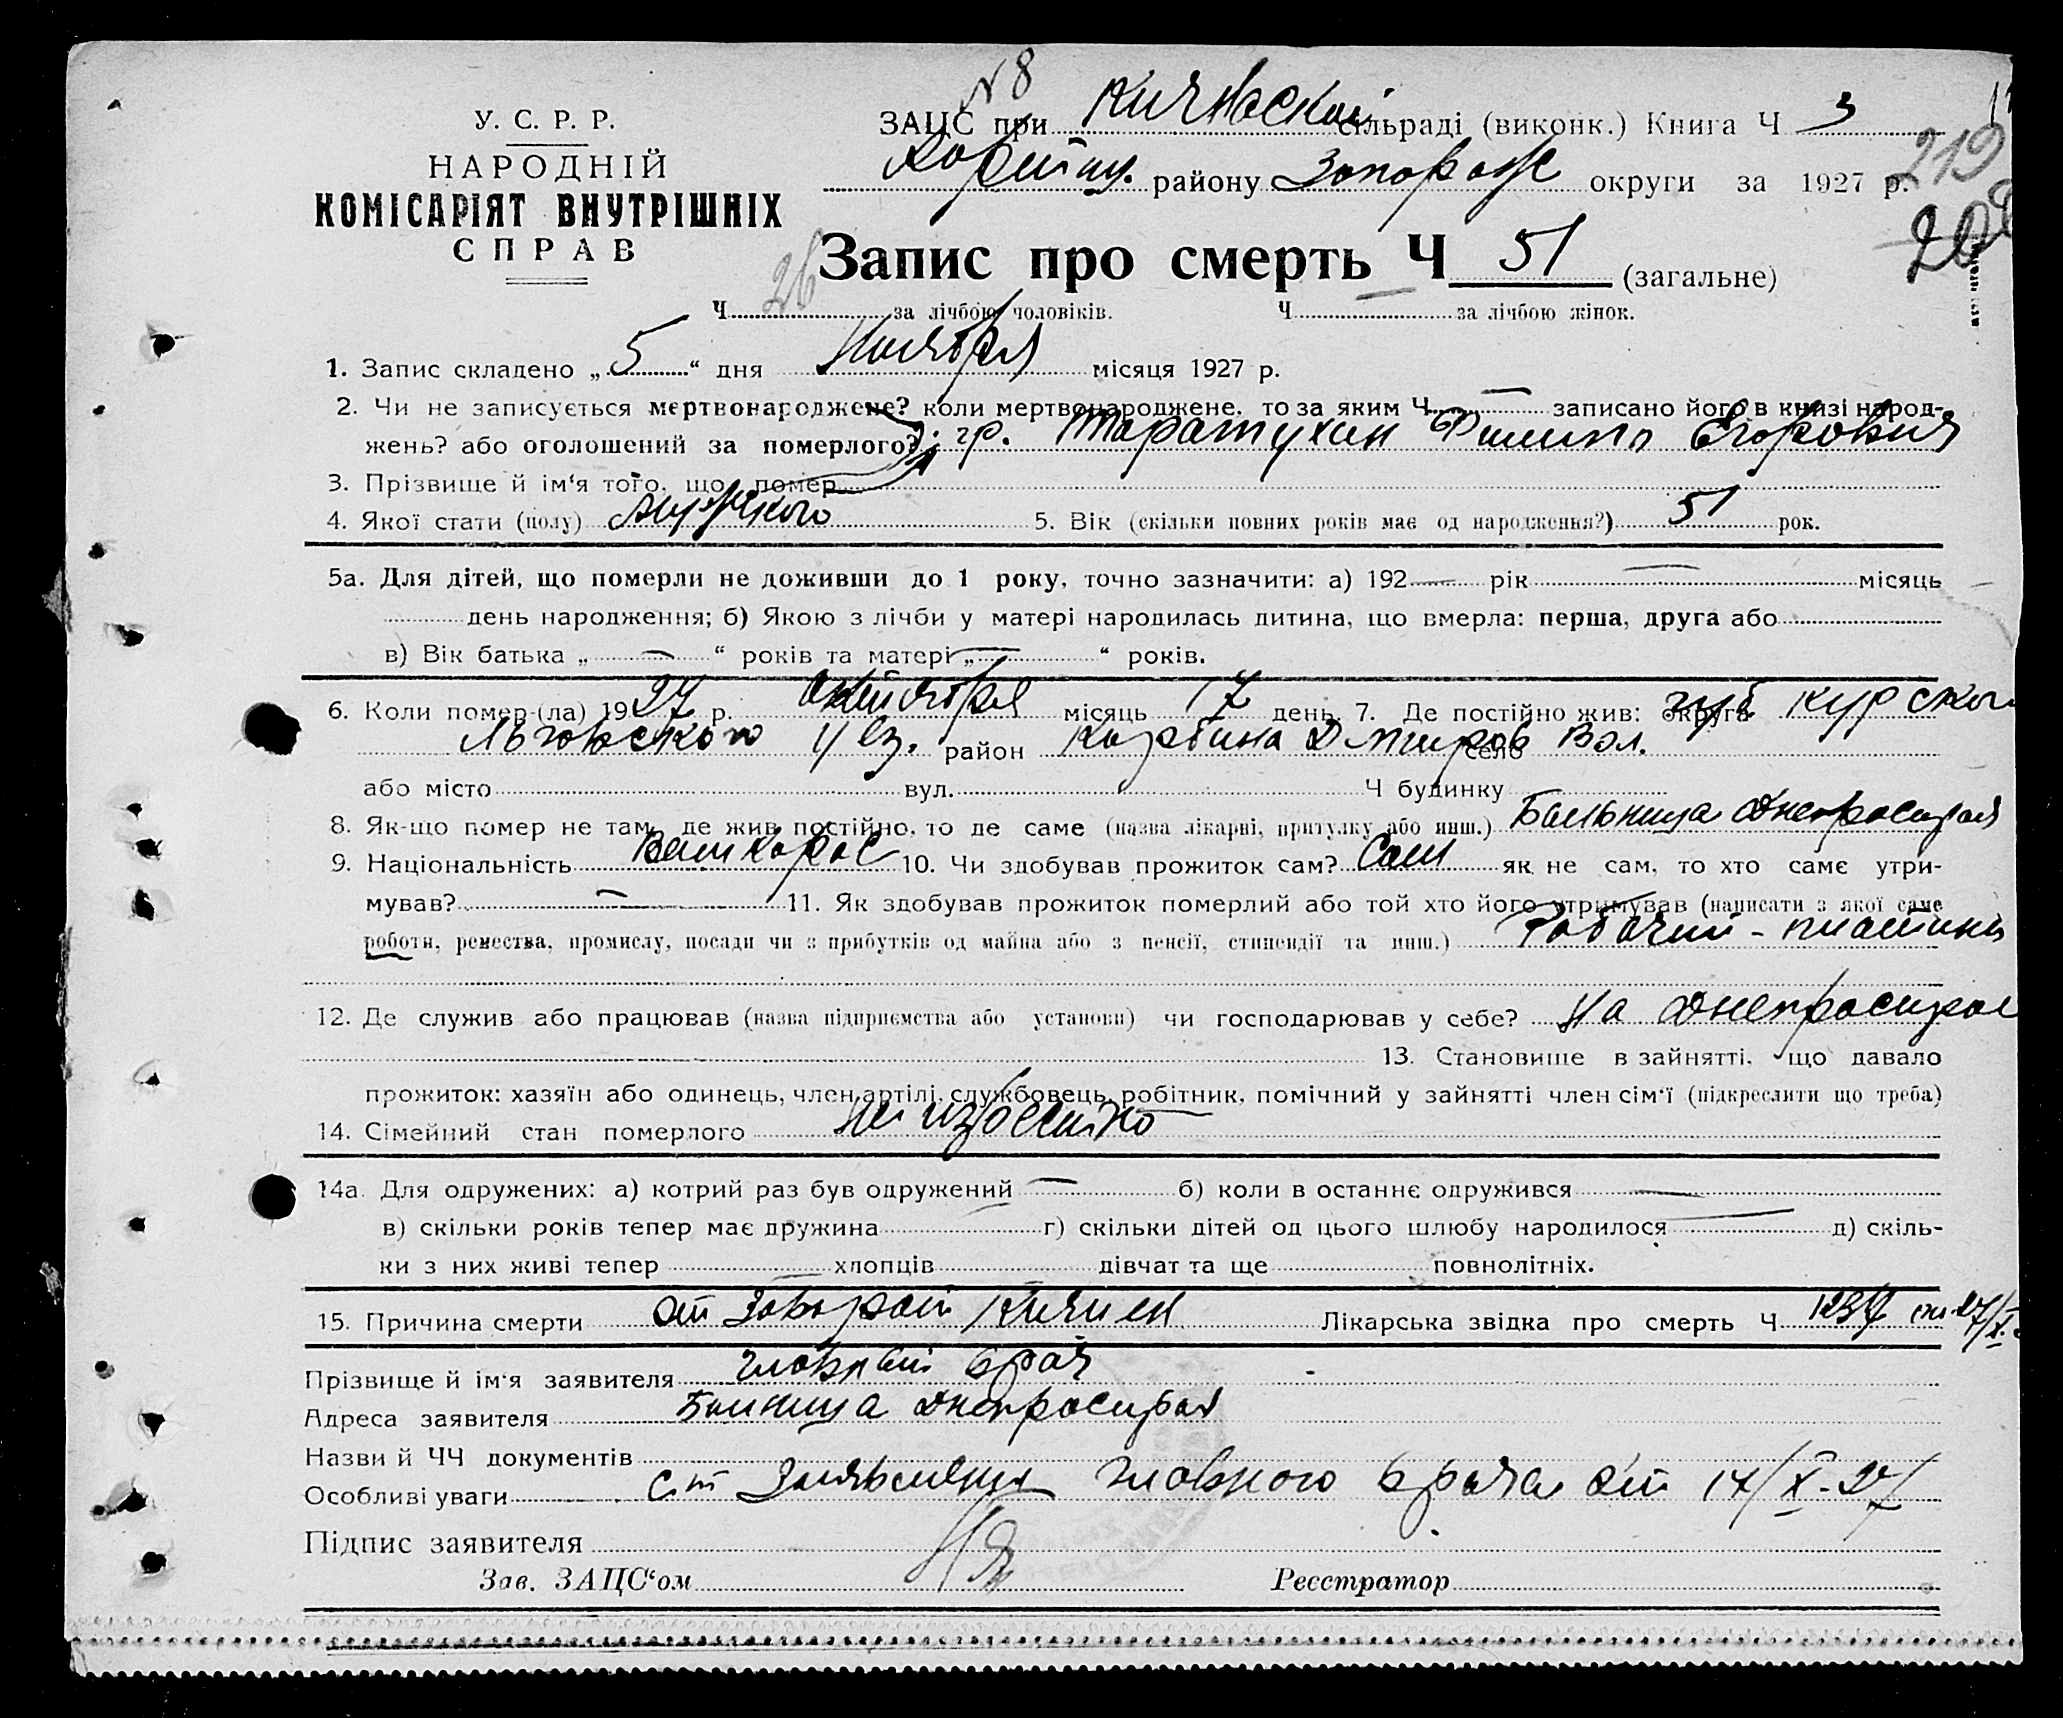 N 8
У. С. Р. Р.
НАРОДНІЙ
КОМІСАРІЯТ ВНУТРІШНІХ
СПРАВ
ЗАЦС при Кичкаской сільраді (виконк.) Книга Ч 3
Хортиц. району Запорож округи за 1927 р.
219
Запис про смерть Ч 51 (загальне)
Ч 26 за лічбою чоловіків. Ч — за лічбою жінок.
1. Запис складено „ 5 “ дня Ноября місяця 1927 р.
2. Чи не записується мертвонароджене? коли мертвонароджене, то за яким Ч — записано його в книзі народ-
жень? або оголошений за померлого? гр. Таратухин Филипп Егорович
3. Прізвище й ім‘я того, що помер
4. Якої стати (полу) Мужского 5. Вік (скільки повних років має од народження?) 51 рок.
5а. Для дітей, що померли не доживши до 1 року, точно зазначити: а) 192 — рік — місяць
день народження; б) Якою з лічби у матері народилась дитина, що вмерла: перша, друга або
в) Вік батька „ — “ років та матері „ — “ років.
6. Коли помер-(ла) 1927 р. Октября місяць 17 день. 7. Де постійно жив: округа губ Курской
Льговского уез. район Дмитров Вол. село
або місто вул. Ч будинку
8. Як-що помер не там, де жив постійно, то де саме (назва лікарні, притулку або инш.) Больница Днепростроя
9. Національність Великорос 10. Чи здобував прожиток сам? Сам як не сам, то хто саме утри-
мував? — 11. Як здобував прожиток померлий або той хто його утримував (написати з якої саме
роботи, ремества, промислу, посади чи з прибутків од майна або з пенсії, стипендії та инш.) Рабочий - плотник
12. Де служив або працював (назва підприємства або установи) чи господарював у себе? На Днепрострое
13. Становище в зайнятті, що давало
прожиток: хазяїн або одинець, член артілі, службовець, робітник, помічний у зайнятті член сім‘ї (підкреслити що треба)
14. Сімейний стан померлого не известно
14а. Для одружених: а) котрий раз був одружений — б) коли в останнє одружився —
в) скільки років тепер має дружина г) скільки дітей од цього шлюбу народилося — д) скіль-
ки з них живі тепер — хлопців дівчат та ще повнолітніх.
15. Причина смерти от Заворот Кишек Лікарська звідка про смерть Ч
Прізвище й ім‘я заявителя главный врач
Адреса заявителя Больница Днепростроя
Назви й ЧЧ документів
Особливі уваги Заявления главного врача от 17/X-27
Підпис заявителя
Зав. ЗАЦС“ом Реєстратор